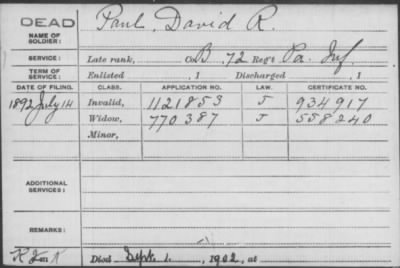 DEAD
NAME OF SOLDIER: Paul, David R.
SERVICE: Late rank, Co. B, 72 Reg't Pa. Inf.
TERM OF SERVICE: Enlisted , 1 Discharged , 1
DATE OF FILING. CLASS. APPLICATION NO. LAW. CERTIFICATE NO.
1892 July 14 Invalid, 1121853 J 934917
Widow, 770387 J 558240
Minor,
ADDITIONAL SERVICES:
REMARKS:
Died Sept. 1, 1902, at